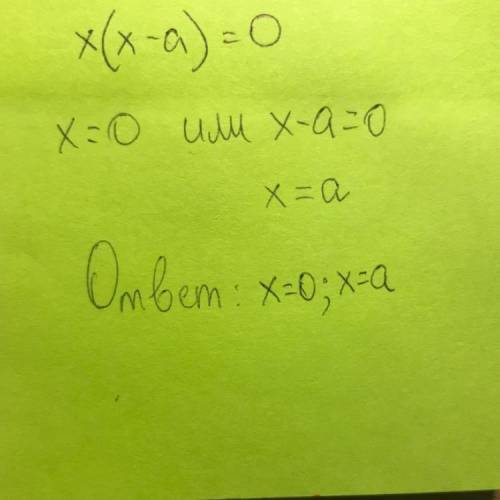 x(x-a)=0
x=0 или x-a=0
x=a
Ответ: x=0; x=a